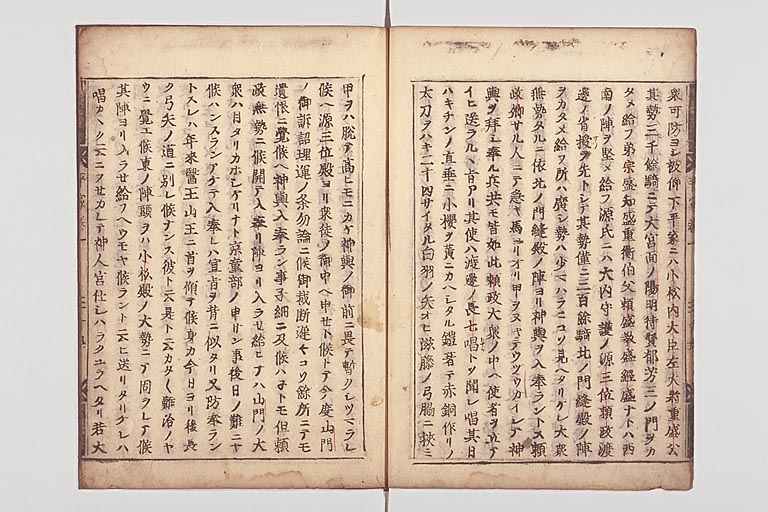 衆可防ヨシ被仰下平家ニハ小松内大臣左大将重盛公
其勢三千餘騎ニテ大宮面ノ陽明待賢郁芳三ノ門ヲカ
タメ給フ弟宗盛知盛重衡伯父頼盛教盛經盛ナトハ西
南ノ陣ヲ堅メ給フ源氏ニハ大内守護ノ源三位頼政渡
邊ノ省授ヲ先トシテ其勢僅ニ三百餘騎北ノ門縫殿ノ陣
ヲカタメ給フ所ハ廣シ勢ハ少シハラニコソ見ヘタリケレ大衆
無勢タルニ依北ノ門縫殿ノ陣ヨリ神輿ヲ入奉ラントス頼
政卿サル人ニテ急キ馬ヨリオリ甲ヲヌキテウツウカイシテ神
輿ヲ拝シ奉ル兵共モ皆如此頼政大衆ノ中ヘ使者ヲ立テ
イヒ送ラルヽ旨アリ其使ハ渡邊ノ長七唱トソ聞シ唱其日
ハキチンノ直垂ニ小櫻ヲ黄ニカヘシタル鎧著テ赤銅作リノ
太刀ヲハキ二十四サイタル白羽ノ矢オヒ滋藤ノ弓脇ニ挾ミ
甲ヲハ脱テ高ヒモニカケ神輿ノ御前ニ畏テ暫クシツマラレ
候ヘ源三位殿ヨリ衆徒ノ御中ヘ申セト候トテ今度山門
ノ御訴詔理運ノ条勿論ニ候御裁断遅々コソ餘所ニテモ
遺恨ニ覺候ヘ神輿入奉ラン事子細ニ及候ハネトモ但頼
政無勢ニ候開テ入奉リ陣ヨリ入ラセ給ヒナハ山門ノ大
衆ハ目タリカホシケリナト京童部ノ申サン事後日ノ難ニヤ
候ハンスランアケテ入奉レハ宣旨ヲ背ニ似タリ又防奉ラン
トスレハ年来醫王山王ニ首ヲ傾テ候身カ今日ヨリ後長
ク弓矢ノ道ニ別レ候ナンス彼ト云是ト云カタ〱難治ノヤ
ウニ覺エ候東ノ陣頭ヲハ小松殿ノ大勢ニテ固ラレテ候
其陣ヨリ入ラセ給フヘウモヤ候ラント云ヒ送リタリケレハ
唱カヘク云ニフセカレテ神人宮仕シハラクユラヘタリ若大